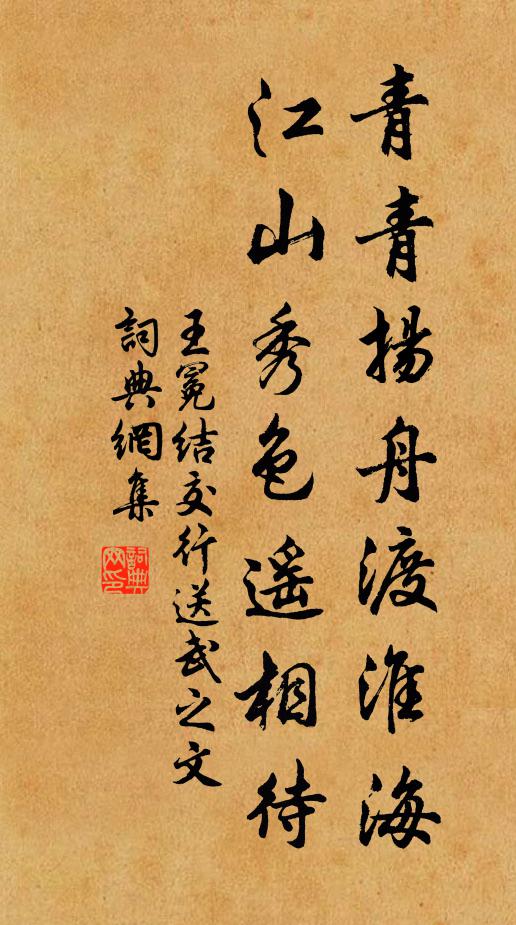 青青揚舟渡淮海
江山秀色遥相待
王冕结交行送武之文
詞典網集
詞典網印